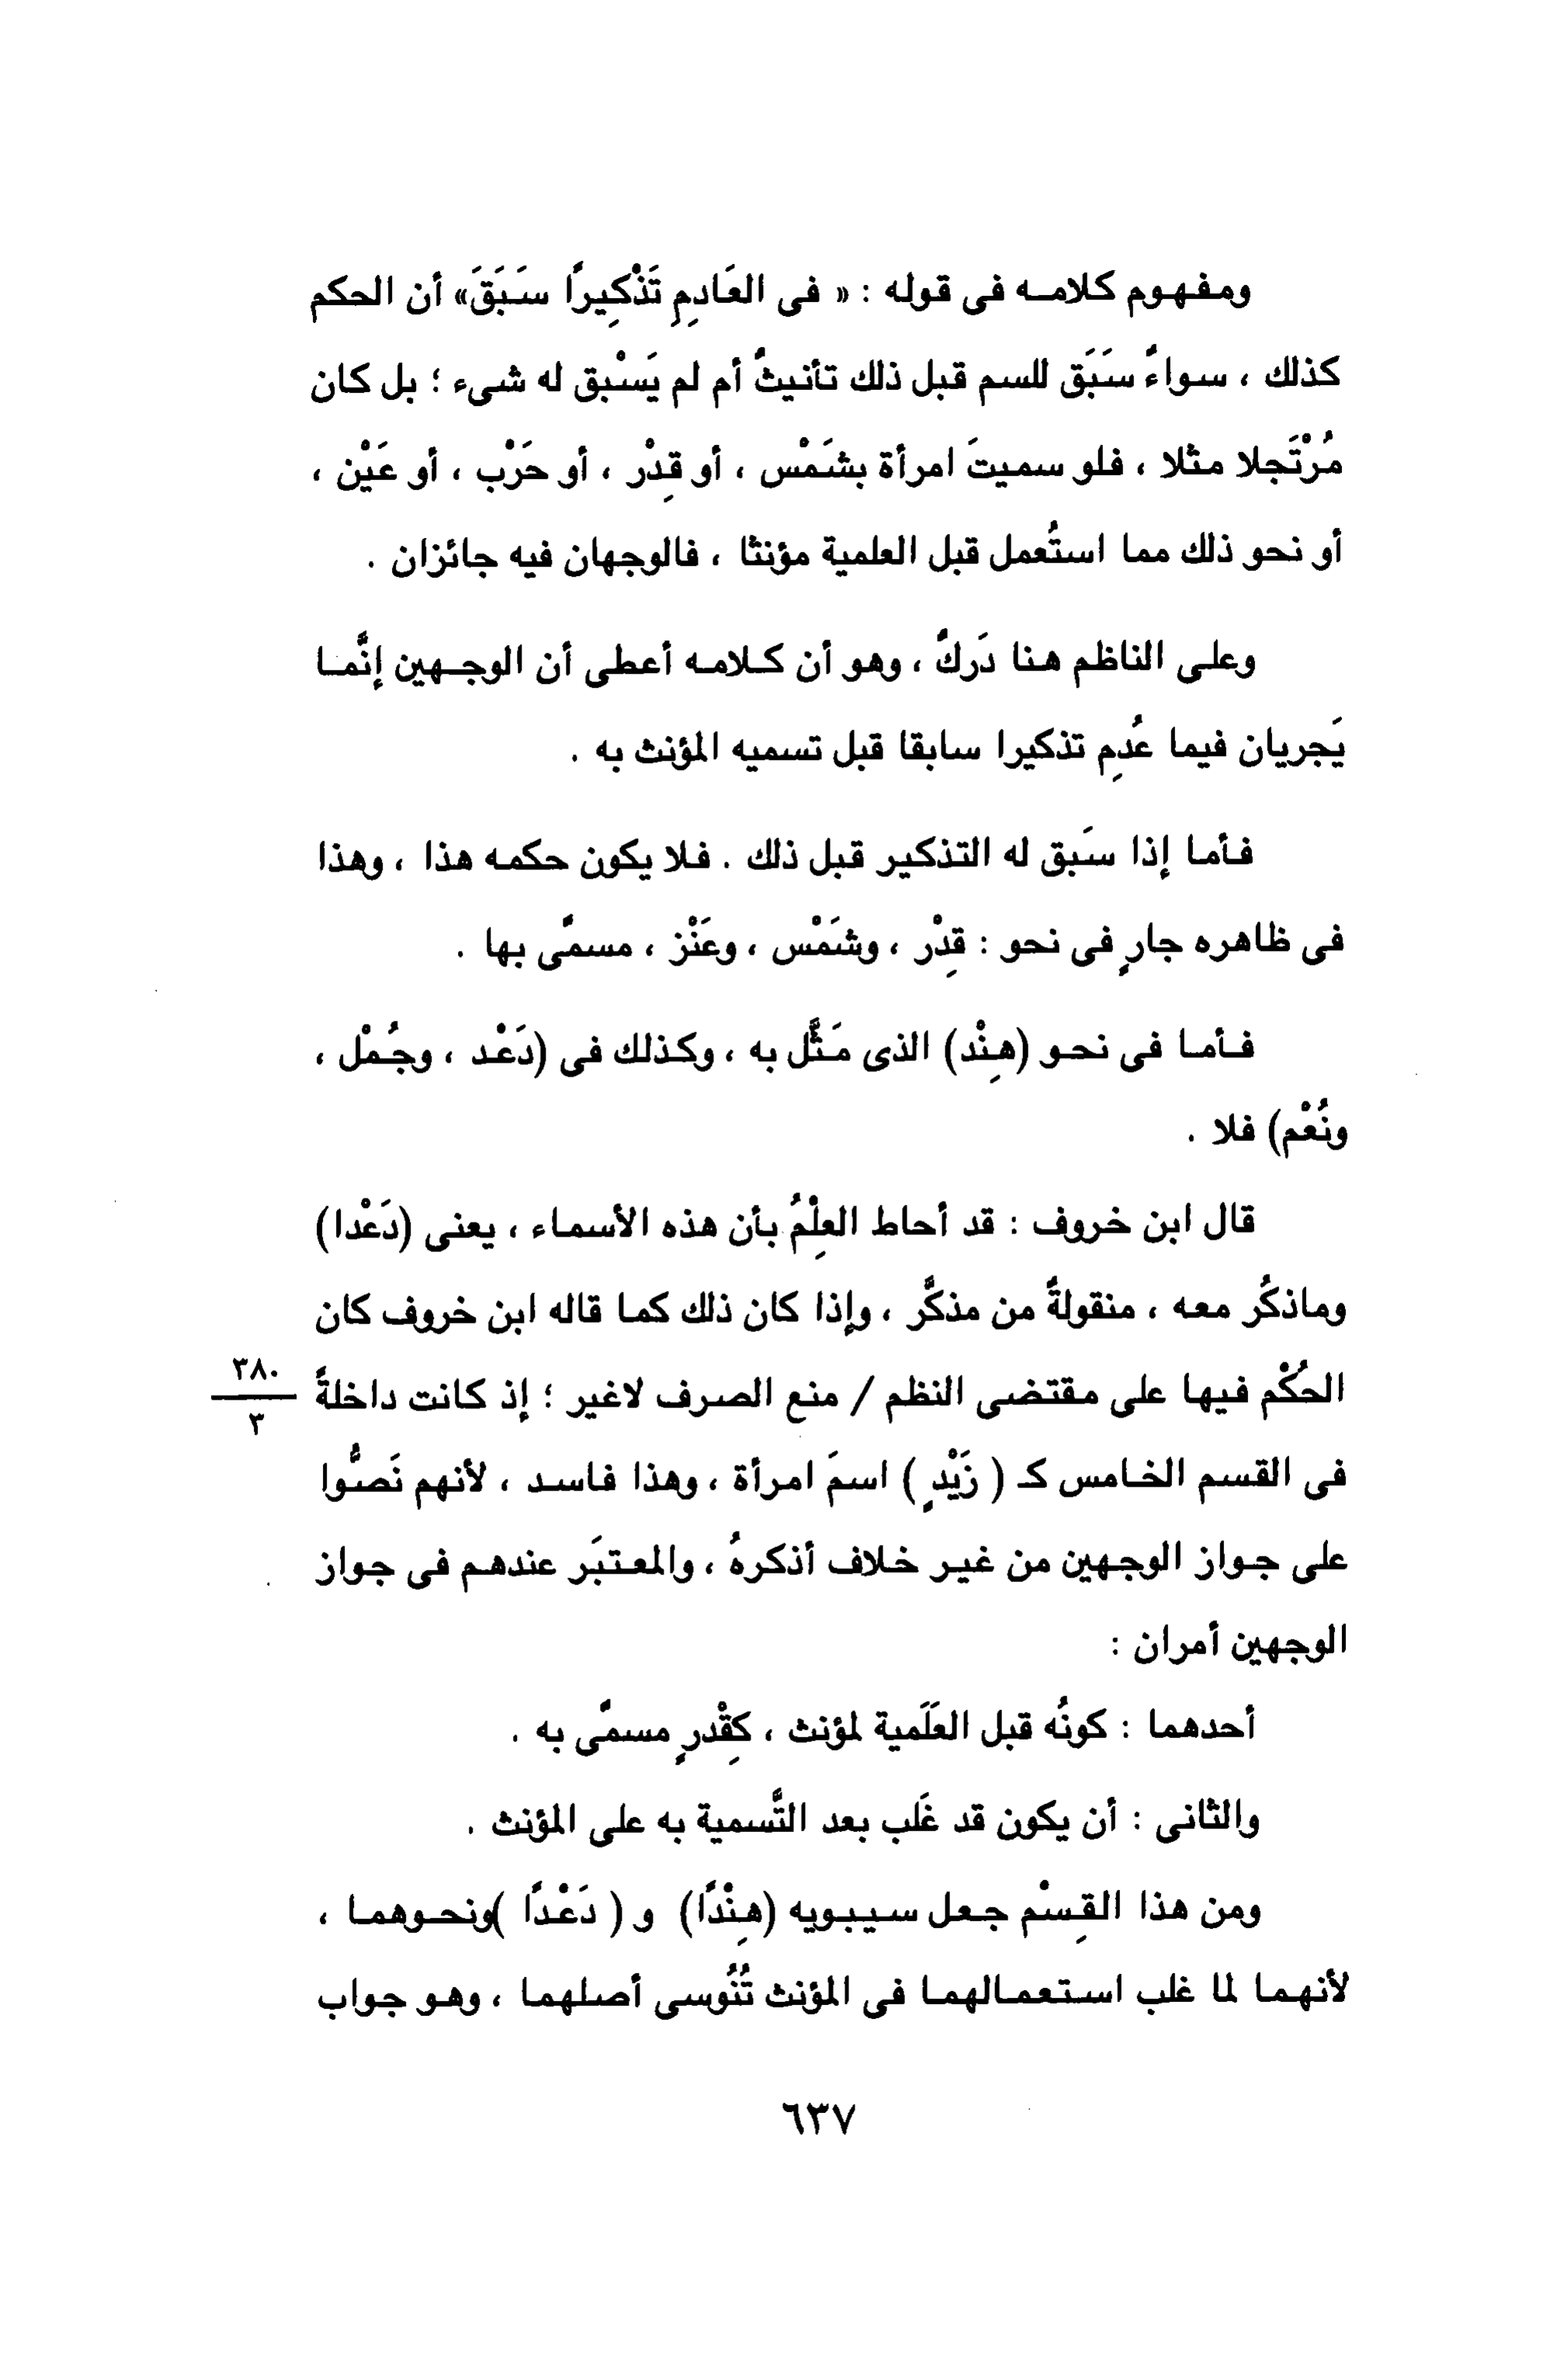 ومفهوم كلامه فى قوله : « فى العَادِمِ تَذْكِيرًا سَبَقَ» أن الحكم
كذلك ، سواءٌ سَبَق للسم قبل ذلك تأنيثٌ أم لم يَسْبق له شىء ؛ بل كان
مُرْتَجلا مثلا ، فلو سميتَ امرأة بشَمْس ، أو قِدْر ، أو حَرْب ، أو عَيْن ،
أو نحو ذلك مما استُعمل قبل العلمية مؤنثا ، فالوجهان فيه جائزان .
وعلى الناظم هنا دَركٌ ، وهو أن كلامه أعطى أن الوجهين إنَّما
يَجريان فيما عُدِم تذكيرا سابقا قبل تسميه المؤنث به .
فأما إذا سَبق له التذكير قبل ذلك . فلا يكون حكمه هذا ، وهذا
فى ظاهره جارٍ فى نحو : قِدْر ، وشَمْس ، وعَنْز ، مسمًّى بها .
فأما فى نحو (هِنْد) الذى مَثَّل به ، وكذلك فى (دَعْد ، وجُمْل ،
ونُعْم) فلا .
قال ابن خروف : قد أحاط العِلْمُ بأن هذه الأسماء ، يعنى (دَعْدا)
وماذكُر معه ، منقولةٌ من مذكَّر ، وإذا كان ذلك كما قاله ابن خروف كان
الحُكْم فيها على مقتضى النظم / منع الصرف لاغير ؛ إذ كانت داخلةً
٣٨٠
٣
فى القسم الخامس كـ ( زَيْدٍ ) اسمَ امرأة ، وهذا فاسد ، لأنهم نَصُّوا
على جواز الوجهين من غير خلاف أذكرهُ ، والمعتبَر عندهم فى جواز
الوجهين أمران :
أحدهما : كونُه قبل العَلَمية لمؤنث ، كِقْدرٍ مسمًّى به .
والثانى : أن يكون قد غَلب بعد التَّسمية به على المؤنث .
ومن هذا القِسْم جعل سيبويه (هِنْدًا) و ( دَعْدًا )ونحوهما ،
لأنهما لما غلب استعمالهما فى المؤنث تُنُوسى أصلهما ، وهو جواب
٦٣٧